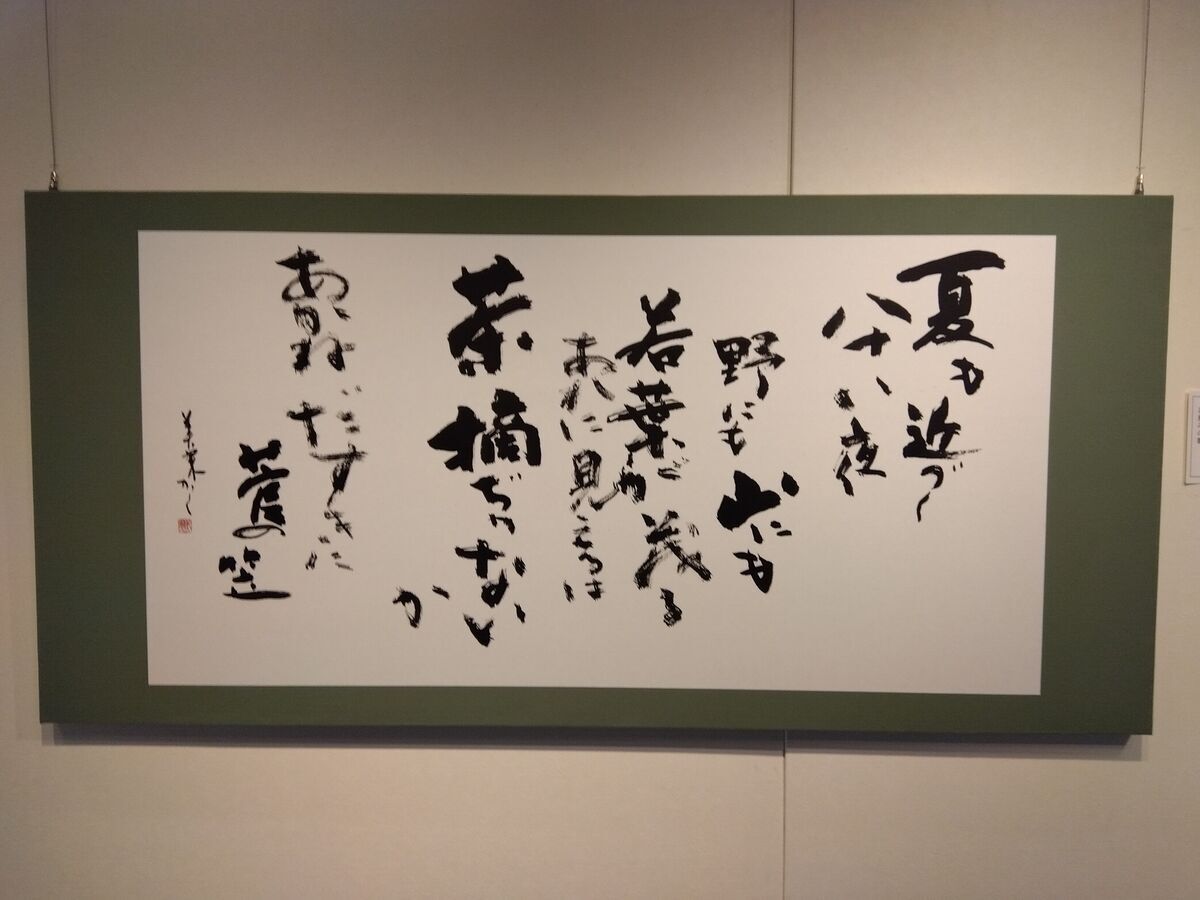 夏も近づく
八十八夜
野にも山にも
若葉が茂る
あれに見えるは
茶摘ぢゃない
か
あかねだすきに
菅の笠
かく